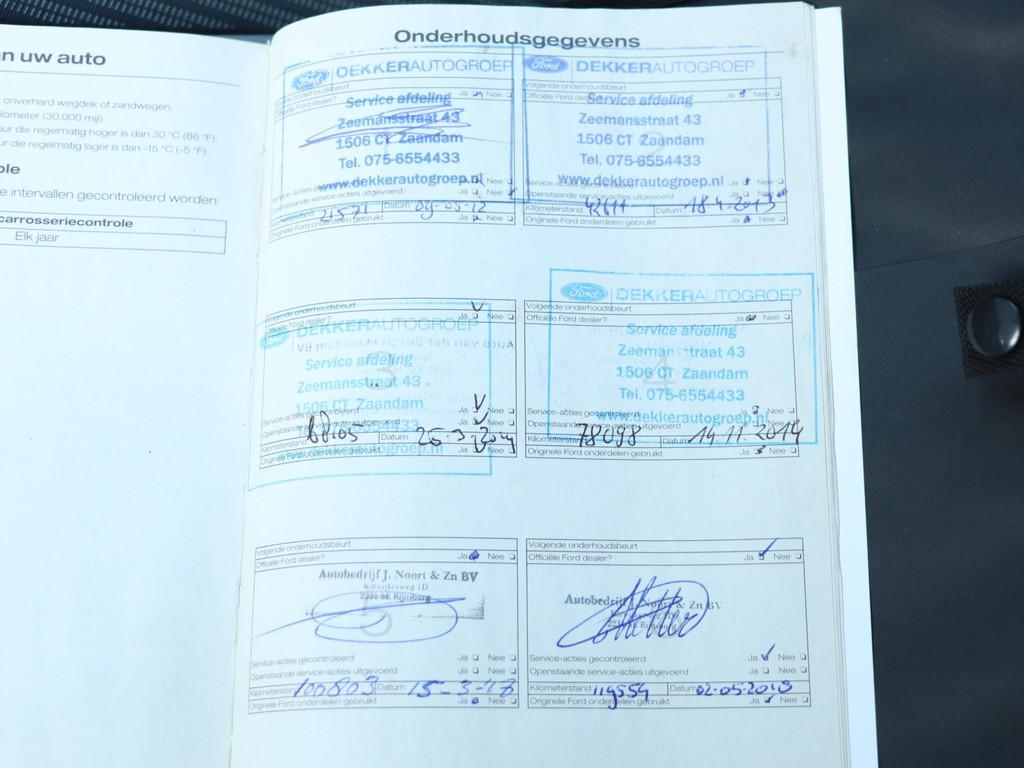 n uw auto
onverhard wegdek of zandwegen.
lometer (30.000 mijl).
ur die regelmatig hoger is dan 30 °C (86 °F).
r die regelmatig lager is dan -15 °C (-5 °F).
ole
e intervallen gecontroleerd worden:
carrosseriecontrole
Elk jaar
Onderhoudsgegevens
Ford DEKKERAUTOGROEP
Officiële Ford dealer? Ja Nee
Service afdeling
Zeemansstraat 43
1506 CT Zaandam
Tel. 075-6554433
www.dekkerautogroep.nl
Openstaande service-acties uitgevoerd Ja Nee
Kilometerstand 21521 Datum 09-05-12
Originele Ford onderdelen gebruikt Ja Nee
Ford DEKKERAUTOGROEP
Volgende onderhoudsbeurt
Officiële Ford dealer? Ja Nee
Service afdeling
Zeemansstraat 43
2
1506 CT Zaandam
Tel. 075-6554433
www.dekkerautogroep.nl Ja Nee
Openstaande service-acties uitgevoerd
Kilometerstand Datum 18-4-2013
Originele Ford onderdelen gebruikt Ja Nee
Volgende onderhoudsbeurt Ja Nee
Officiële Ford dealer?
DEKKERAUTOGROEP
Service afdeling
3
Zeemansstraat 43
1506 CT Zaandam
Service-acties gecontroleerd Ja Nee
Openstaande service-acties uitgevoerd Ja Nee
Kilometerstand Datum 25-3-2014
Originele Ford onderdelen gebruikt Ja Nee
Ford DEKKERAUTOGROEP
Volgende onderhoudsbeurt
Officiële Ford dealer? Ja Nee
Service afdeling
Zeemansstraat 43
4
1506 CT Zaandam
Tel. 075-6554433
Service-acties gecontroleerd Ja Nee
www.dekkerautogroep.nl
Openstaande service-acties uitgevoerd
Kilometerstand 78098 Datum 14.11.2014
Originele Ford onderdelen gebruikt Ja Nee
Volgende onderhoudsbeurt
Officiële Ford dealer? Ja Nee
Autobedrijf J. Noort & Zn BV
Katwijkerweg 1D
2231 SE Rijnsburg
5
Service-acties gecontroleerd Ja Nee
Openstaande service-acties uitgevoerd Ja Nee
Kilometerstand 100803 Datum 15-3-17
Originele Ford onderdelen gebruikt Ja Nee
Volgende onderhoudsbeurt
Officiële Ford dealer? Ja Nee
Autobedrijf J. Noort & Zn BV
Service-acties gecontroleerd Ja Nee
Openstaande service-acties uitgevoerd Ja Nee
Kilometerstand 119559 Datum 02-05-2018
Originele Ford onderdelen gebruikt Ja Nee